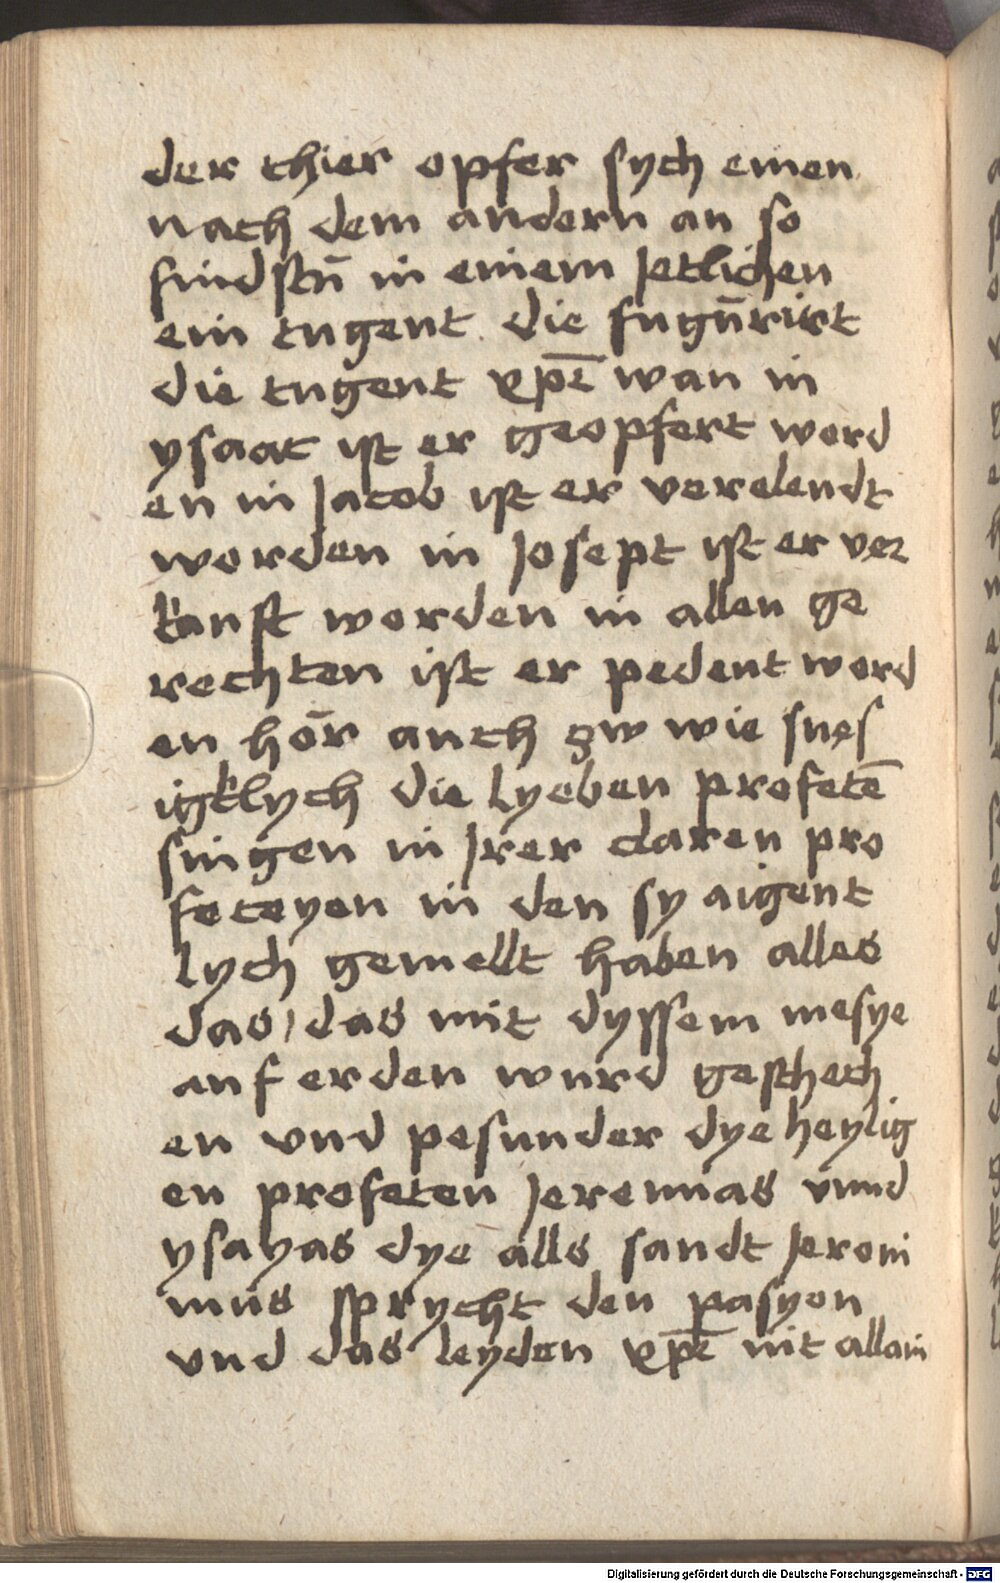 der thier opfer sych einen
nach dem andern an so
findstu in einem Jetlichen
ein tugent die fugurirt
die tugent xp̄ī wan in
ysaac ist er geopfert word
en in Jacob ist er verelendt
worden in Josept ist er ver
kauft worden in allen ge
rechten ist er pedeut word
en hor̄ auch zw wie sues
igklych die lyeben profetē
singen in Jrer claren pro
feceyen in den sy aigent
lych gemellt haben alles
das / das mit dyssem mesye
auf erden wurd geschech
en vnd pesunder dye heylig
en profeten Jeremias vnnd
ysayas dye alls sandt Jeroni
mus sprycht den pasyon
vnd das leyden xp̄ī nit allain
Digitalisierung gefördert durch die Deutsche Forschungsgemeinschaft - DFG